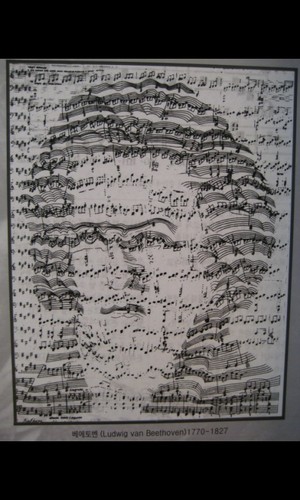 베에토벤 (Ludwig van Beethoven)1770~1827